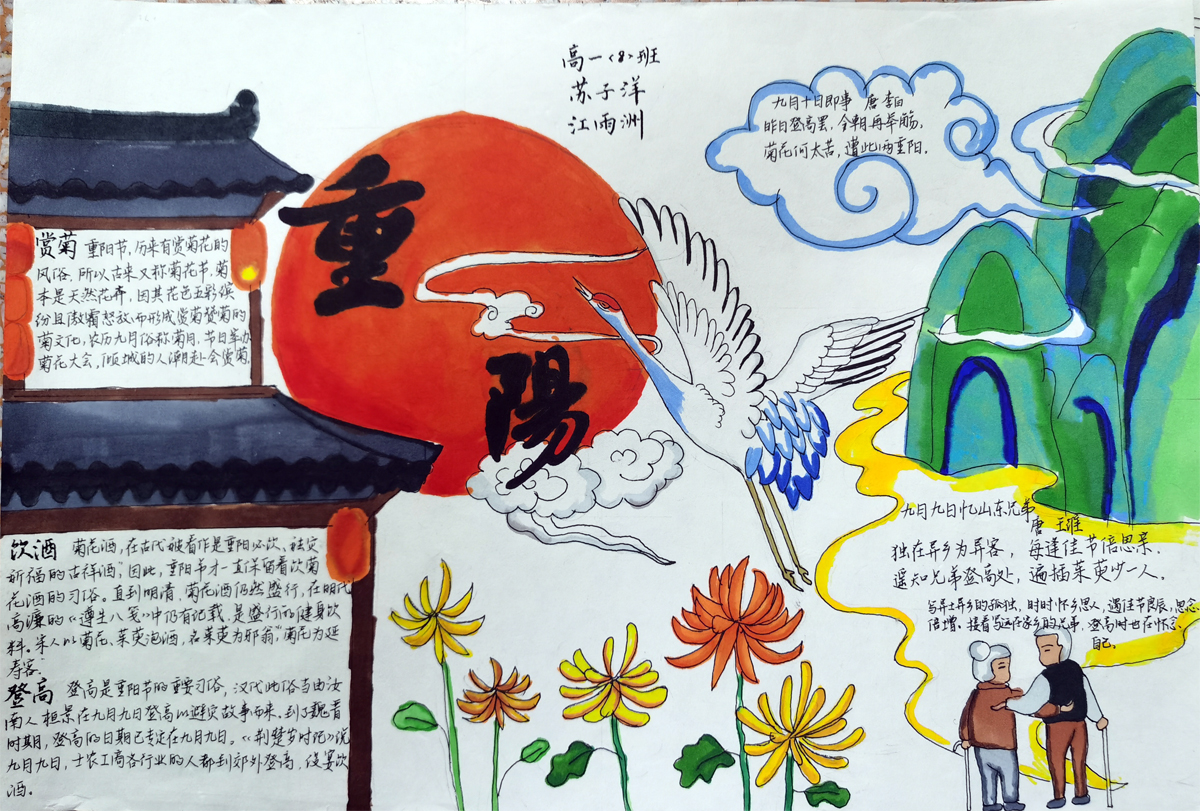 高一<8>班
苏子洋
江雨洲
重
陽
九月十日即事 唐 李白
昨日登高罢，今朝再举觞。
菊花何太苦，遭此两重阳。
赏菊 重阳节，历来有赏菊花的
风俗，所以古来又称菊花节。菊
本是天然花卉，因其花色五彩缤
纷且傲霜怒放，而形成赏菊赞菊的
菊文化。农历九月俗称菊月，节日举办
菊花大会，倾城的人潮赴会赏菊。
饮酒 菊花酒，在古代被看作是重阳必饮、祛灾
祈福的“吉祥酒”，因此，重阳节才一直保留着饮菊
花酒的习俗。直到明清，菊花酒仍然盛行，在明代
高濂的《遵生八笺》中仍有记载，是盛行的健身饮
料。宋人以菊花、茱萸泡酒，名茱萸为“辟邪翁”菊花为“延
寿客”。
登高 登高是重阳节的重要习俗，汉代此俗当由汝
南人桓景在九月九日登高以避灾故事而来，到了魏晋
时期，登高的日期已专定在九月九日。《荆楚岁时记》说
九月九日，士农工商各行业的人都到郊外登高，设宴饮
酒。
九月九日忆山东兄弟
唐 王维
独在异乡为异客，每逢佳节倍思亲。
遥知兄弟登高处，遍插茱萸少一人。
写异土异乡的孤独，时时怀乡思人，遇佳节良辰，思念
倍增。接着写远在家乡的兄弟，登高时也在怀念
自己。